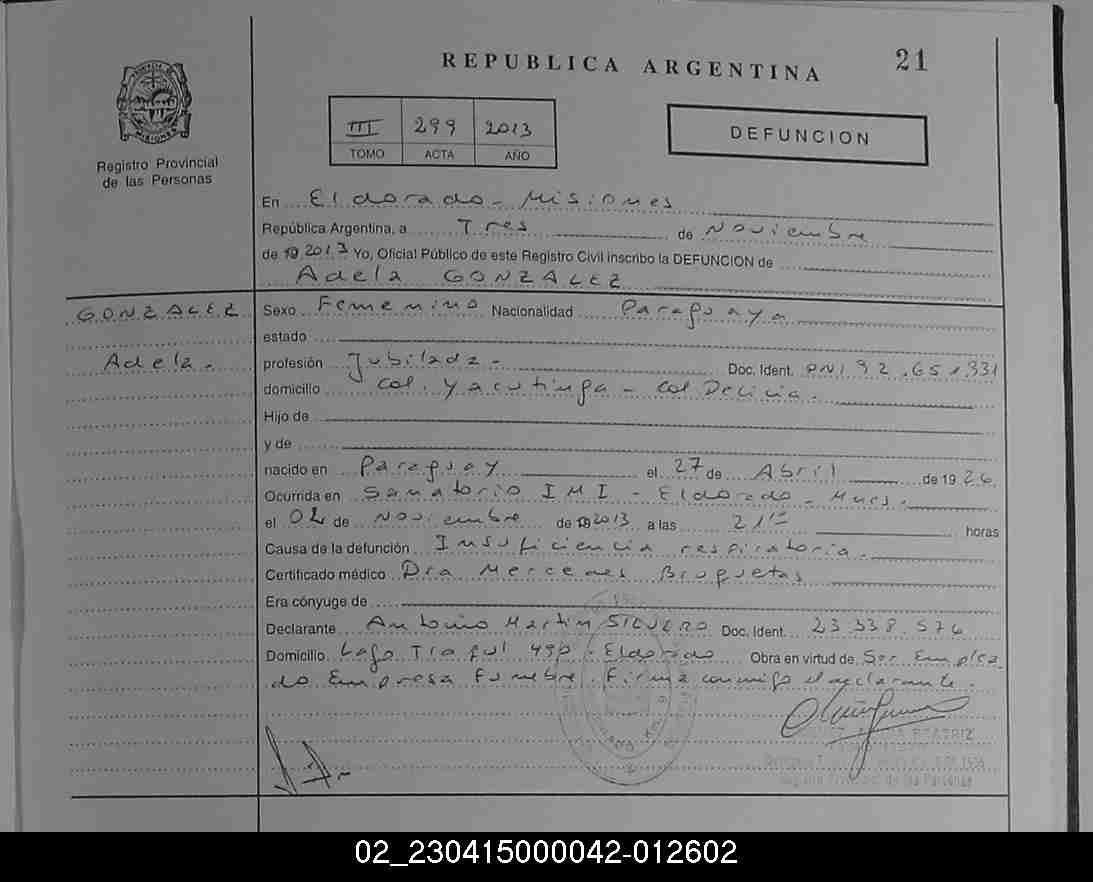 REPUBLICA ARGENTINA 21
PROVINCIA DE MISIONES
Registro Provincial
de las Personas
III 299 2013
TOMO ACTA AÑO
DEFUNCION
En Eldorado - Misiones
República Argentina, a Tres de Noviembre
de 19 2013 Yo, Oficial Público de este Registro Civil inscribo la DEFUNCION de
Adela GONZALEZ
GONZALEZ
Adela.
Sexo Femenino Nacionalidad Paraguaya
estado
profesión Jubilada - Doc. Ident. DNI 92.651331
domicilio Col. Yacutinga - Col Delicia.
Hijo de
y de
nacido en Paraguay el 27 de Abril de 19 26.
Ocurrida en Sanatorio IMI - Eldorado - Mnes.
el 02 de Noviembre de 19 2013 a las 21 horas
Causa de la defunción Insuficiencia respiratoria.
Certificado médico Dra Mercedes Bruquetas
Era cónyuge de
Declarante Antonio Martin SILVERO Doc. Ident. 23 338.576
Domicilio Lago 490 - Eldorado Obra en virtud de Ser Emplea
do Empresa Funebre. Firma conmigo el declarante.
BEATRIZ
de las Personas
02_230415000042-012602